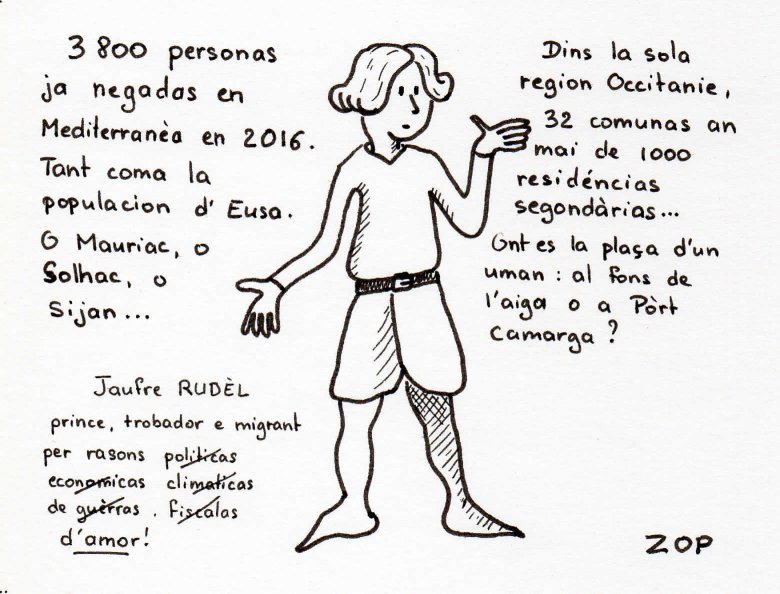 3 800 personas
ja negadas en
Mediterranèa en 2016.
Tant coma la
populacion d'Eusa.
O Mauriac, o
Solhac, o
Sijan...
Dins la sola
region Occitanie,
32 comunas an
mai de 1000
residéncias
segondàrias...
Ont es la plaça d'un
uman : al fons de
l'aiga o a Pòrt
Camarga ?
Jaufre RUDÈL
prince, trobador e migrant
per rasons politicas
economicas climaticas
de guèrras. fiscalas
d'amor!
ZOP